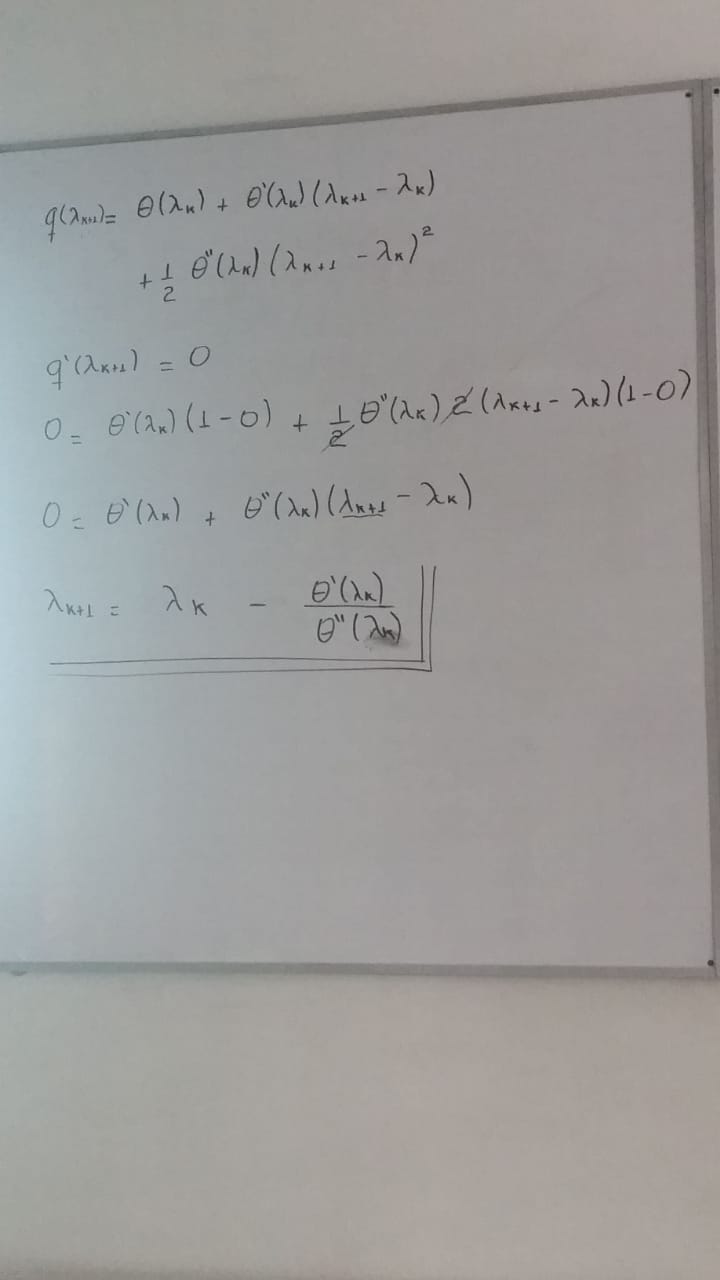 q(λₖ₊₁) = θ(λₖ) + θ'(λₖ)(λₖ₊₁ - λₖ)
+ 1/2 θ''(λₖ)(λₖ₊₁ - λₖ)²
q'(λₖ₊₁) = 0
0 = θ'(λₖ)(1-0) + 1/2 θ''(λₖ) 2 (λₖ₊₁ - λₖ)(1-0)
0 = θ'(λₖ) + θ''(λₖ)(λₖ₊₁ - λₖ)
λₖ₊₁ = λₖ - θ'(λₖ)/θ''(λₖ)